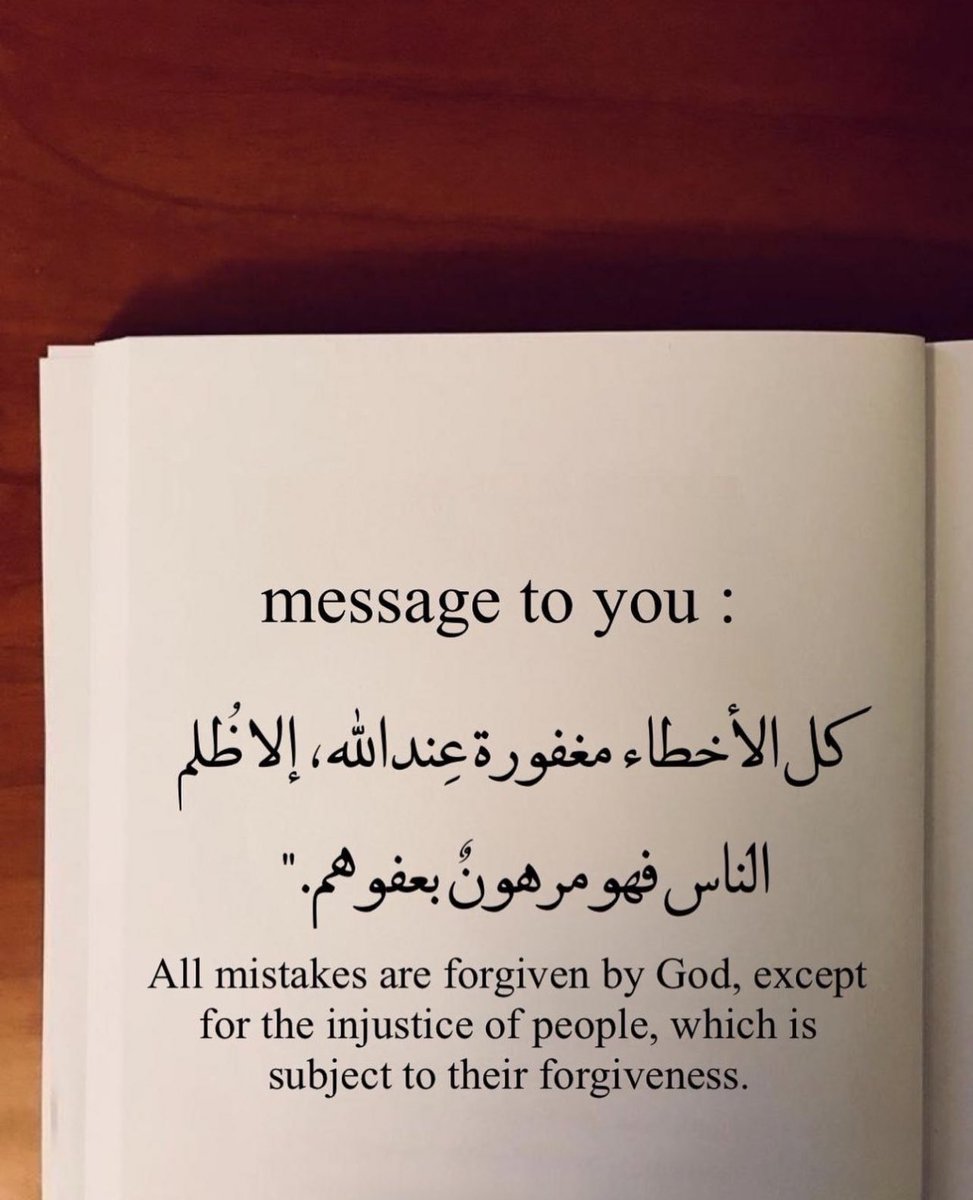 message to you :
كل الأخطاء مغفورة عِند الله، إلا ظُلم
الناس فهو مرهونٌ بعفوهم."
All mistakes are forgiven by God, except
for the injustice of people, which is
subject to their forgiveness.